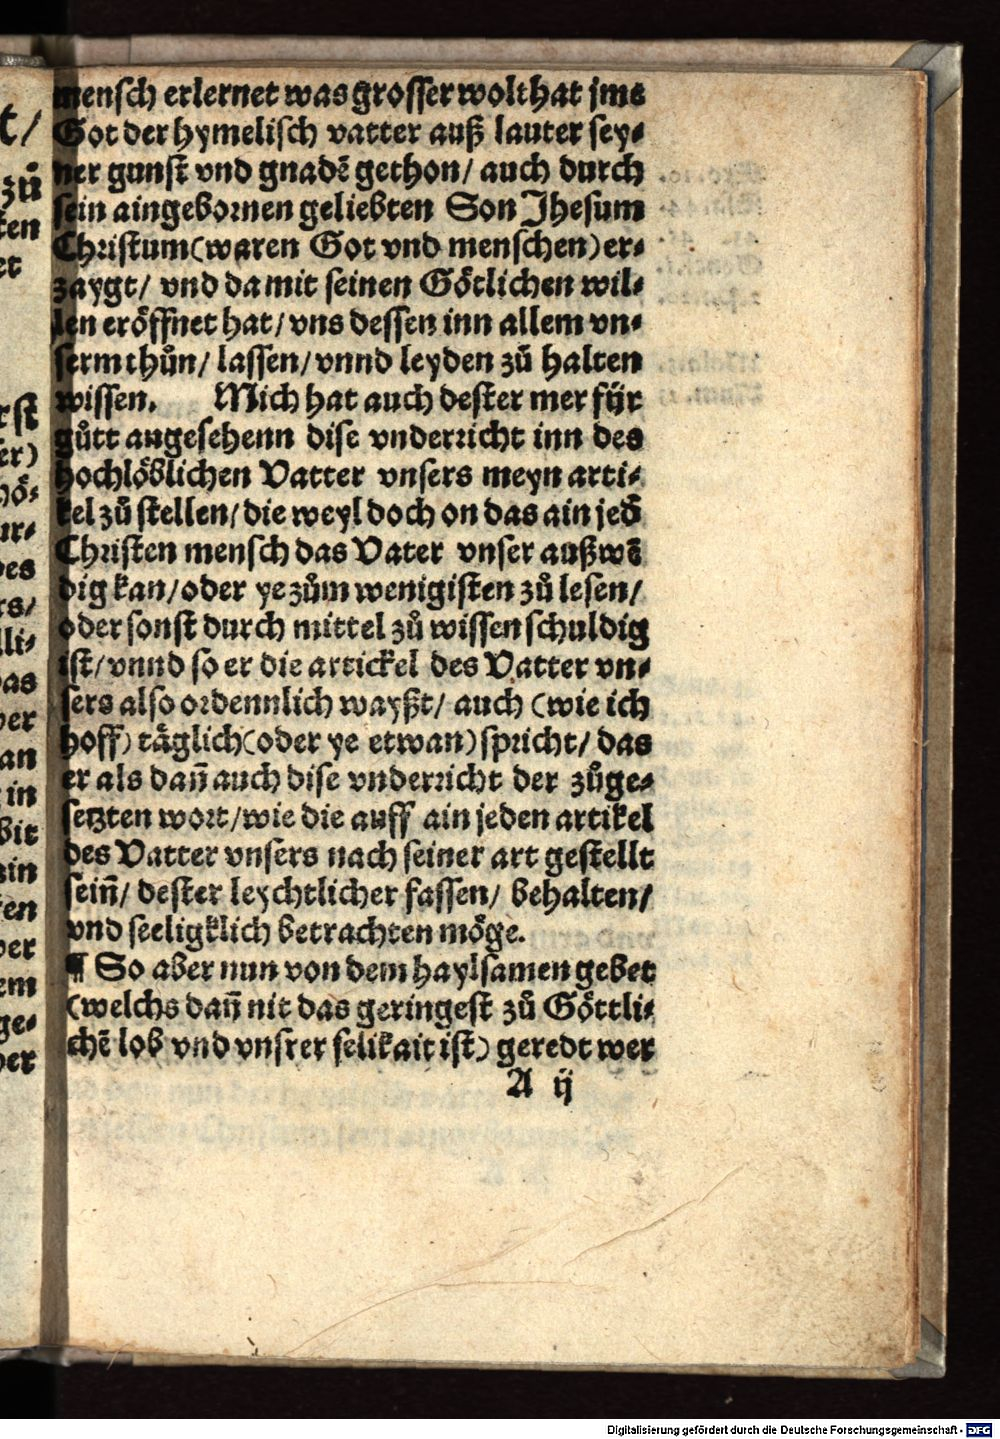 mensch erlernet was grosser wolthat jme
Got der hymelisch vatter auß lauter sey⸗
ner gunst vnd gnadē gethon/ auch durch
sein aingebornen geliebten Son Jhesum
Christum (waren Got vnd menschen) er⸗
zaygt/ vnd da mit seinen Götlichen wil⸗
len eröffnet hat/ vns dessen inn allem vn⸗
serm thůn/ lassen/ vnnd leyden zů halten
wissen. Mich hat auch dester mer für
gůtt angesehenn dise vnderricht inn des
hochlöblichen Vatter vnsers meyn arti⸗
kel zů stellen/ die weyl doch on das ain jed̄
Christen mensch das Vater vnser außwē
dig kan/ oder ye zům wenigisten zů lesen/
oder sonst durch mittel zů wissen schuldig
ist/ vnnd so er die artickel des Vatter vn⸗
sers also ordennlich wayßt/ auch (wie ich
hoff) täglich (oder ye etwan) spricht/ das
er als dañ auch dise vnderricht der zůge⸗
setzten wort/ wie die auff ain jeden artikel
des Vatter vnsers nach seiner art gestellt
seiñ/ dester leychtlicher fassen/ behalten/
vnd seeligklich betrachten möge.
¶ So aber nun von dem haylsamen gebet
(welchs dañ nit das geringest zů Göttli⸗
chē lob vnd vnsrer selikait ist) geredt wer
A ij
t/
zů
ten
et
rst
er)
hö⸗
ur⸗
des
rs/
lli⸗
das
ver
an
in
bit
ain
ten
ver
em
ge⸗
ver
Digitalisierung gefördert durch die Deutsche Forschungsgemeinschaft - DFG